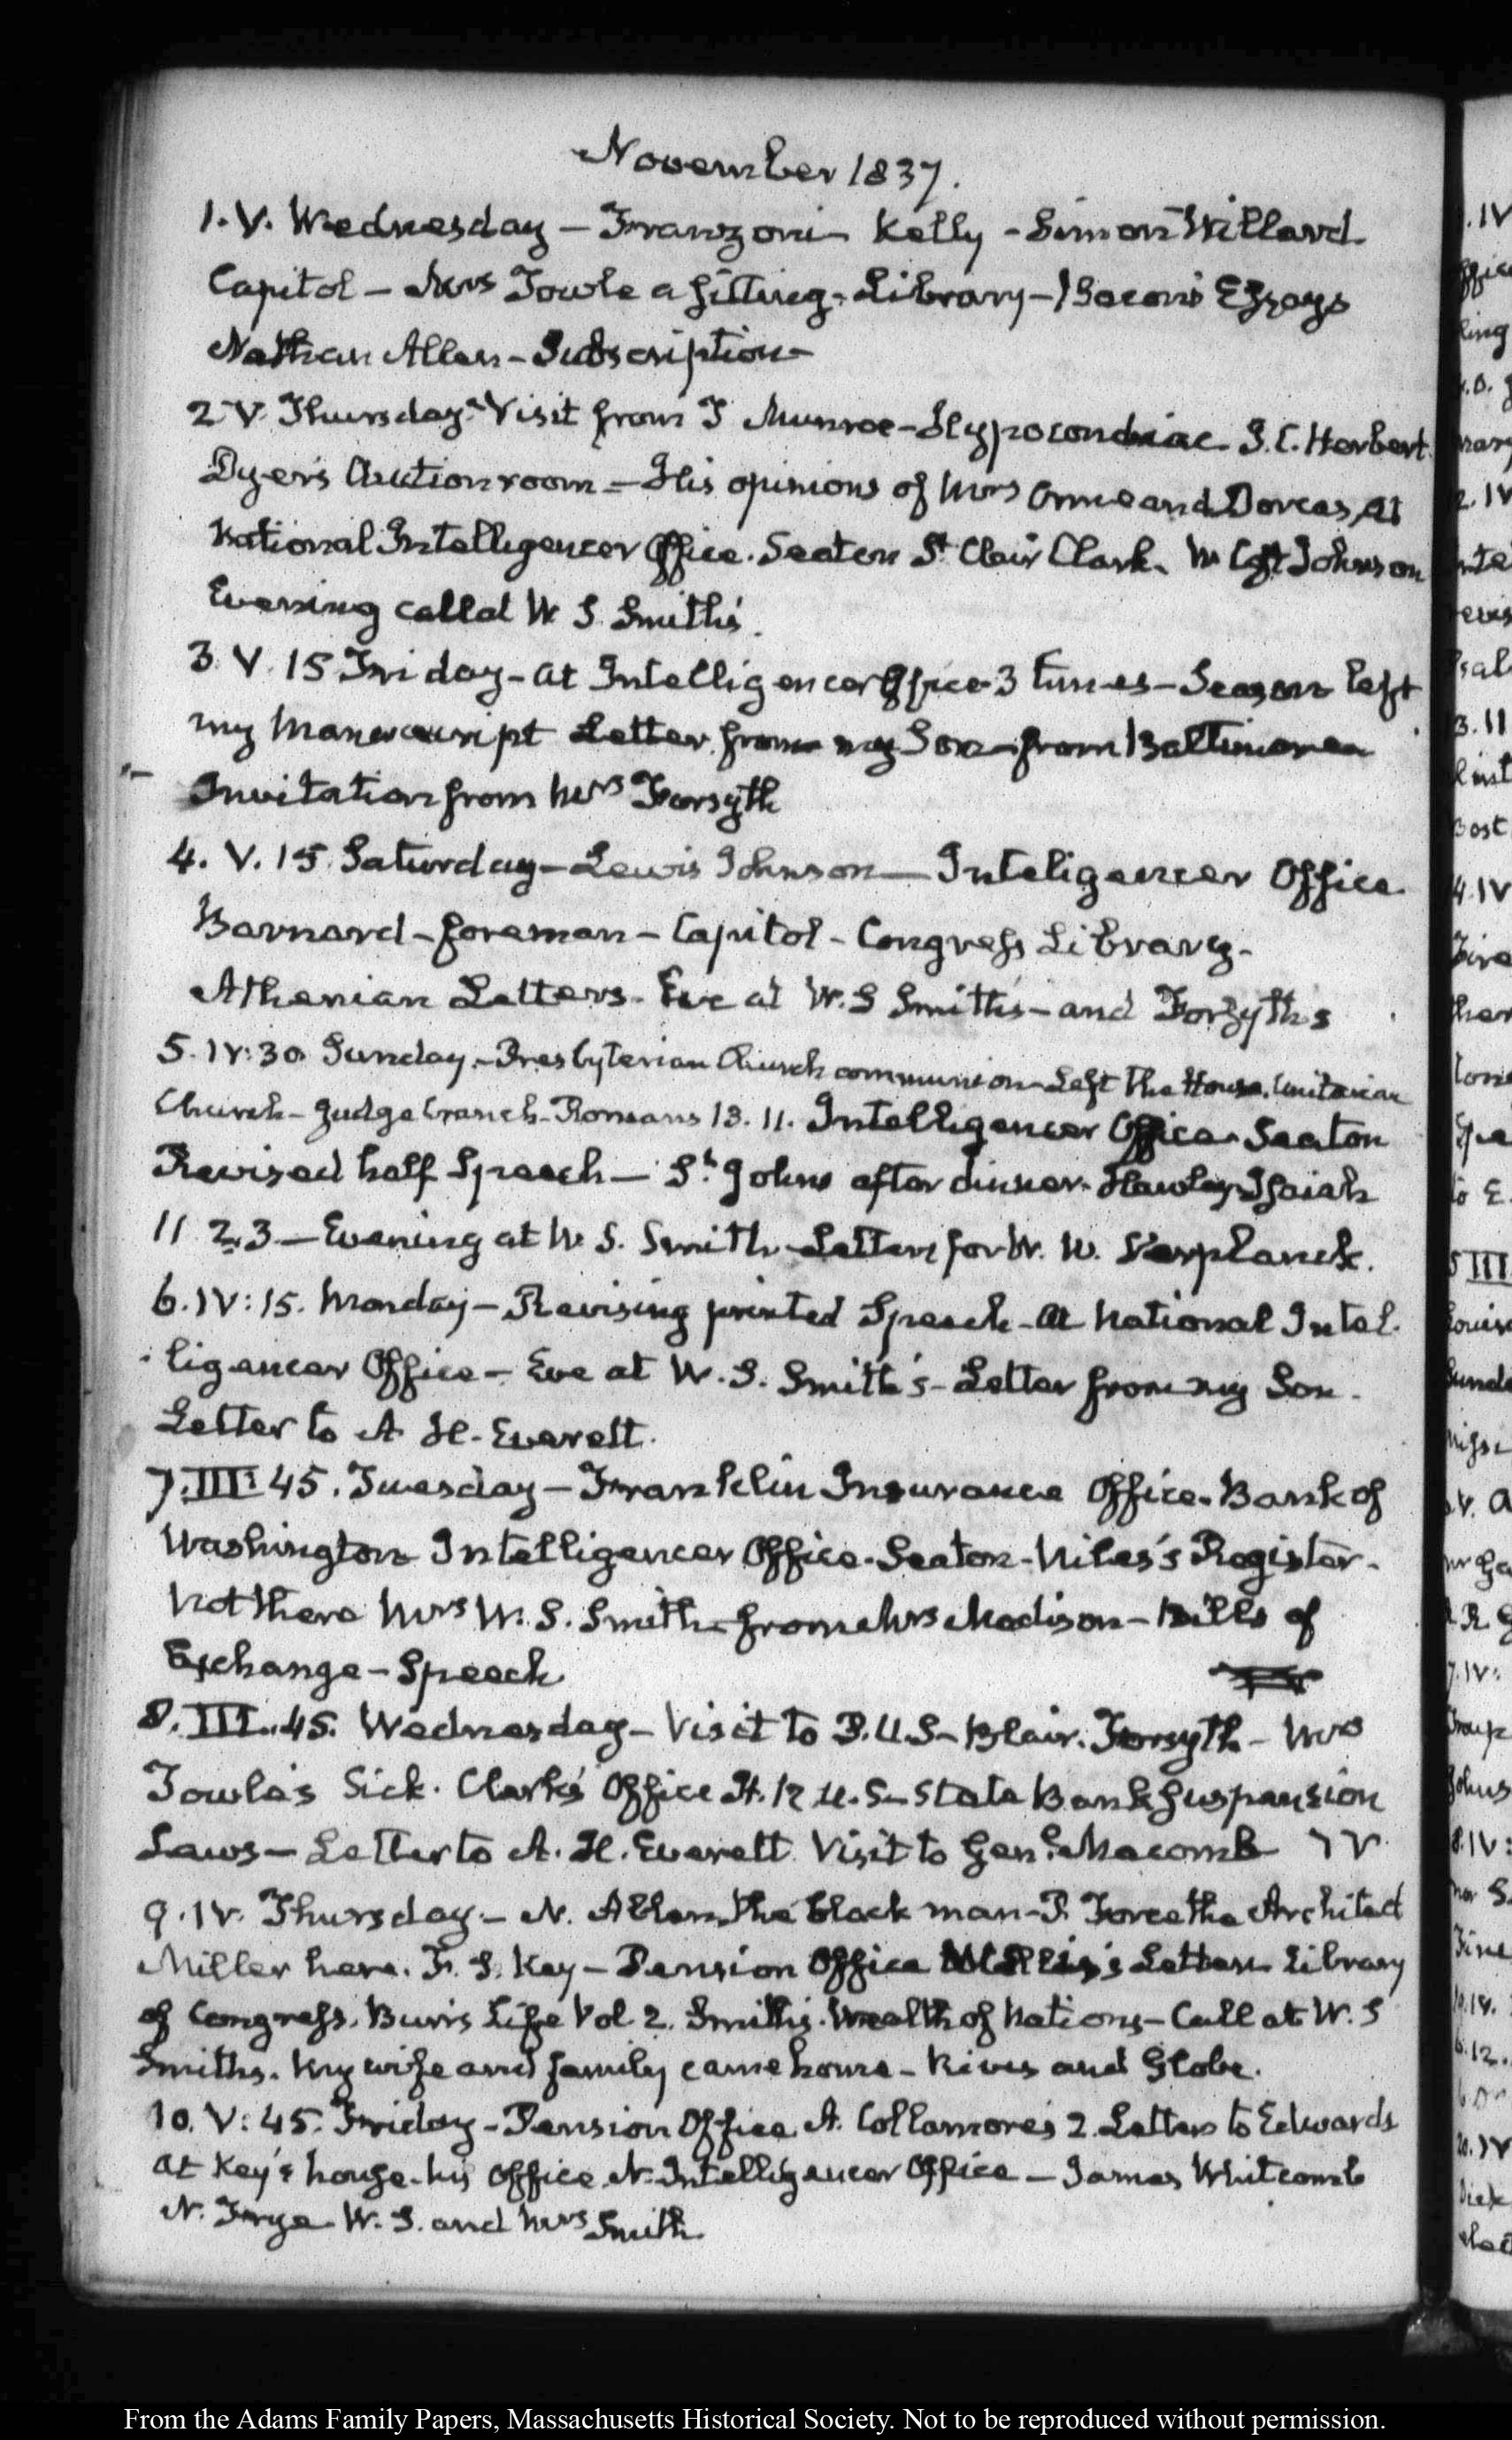 November 1837.
1. V. Wednesday – Franzoni – Kelly – Simon Willard
Capitol – Mrs Towle a sitting – Library – Bacon's Essays
Nathan Allen – Subscription –
2 V. Thursday – Visit from T Munroe – Hypocondriac J. C. Herbert
Dyer's Auction room – His opinions of Mrs Orme and Dorcas, At
National Intelligencer Office. Seaton St Clair Clark. W Johnson
Evening called W S Smith's.
3. V. 15 Friday – at Intelligencer Office 3 times – Season left
my Manuscript Letter from my Son – from Baltimore
Invitation from Mrs Forsyth
4. V. 15. Saturday – Lewis Johnson – Inteligencer Office
Barnard – foreman – Capitol – Congress Library –
Athenian Letters – Eve at W. S Smith's – and Forsyth's
5. IV:30 Sunday – Presbyterian Church communion – Left the House. Unitarian
Church – Judge Cranch – Romans 13. 11. Intelligencer Office – Seaton
Revised half Speech – St Johns after dinner. Hawley – Isaiah
11 2, 3 – Evening at W. S. Smith – Letters for W. W. Verplanck.
6. IV:15. Monday – Revising printed Speech – At National Intel-
ligencer Office – Eve at W. S. Smith's – Letter from my Son.
Letter to A H. Everett.
7. III:45. Tuesday – Franklin Insurance Office. Bank of
Washington Intelligencer Office – Seaton – Niles's Register –
Not there Mrs W. S. Smith – from Mrs Madison – Bills of
Exchange – Speech
8. III. 45. Wednesday – Visit to P. U. S – Blair. Forsyth – Mrs
Towle's Sick. Clark's Office H. R U. S – State Bank Suspension
Laws – Letter to A. H. Everett Visit to Genl. Macomb IV
9. IV. Thursday – N. Allen, the black man – P. Force the Architect
Miller here. F. S. Key – Pension Office Letters Library
of Congress. Burr's Life Vol 2. Smith's Wealth of Nations – Call at W. S
Smiths. My wife and family came home – Rives and Globe.
10. V:45. Friday – Pension Office A. Collamore's 2 Letters to Edwards
At Key's house – his Office. N. Intelligencer Office – James Whitcomb
N. Frye – W. S. and Mrs Smith.
From the Adams Family Papers, Massachusetts Historical Society. Not to be reproduced without permission.